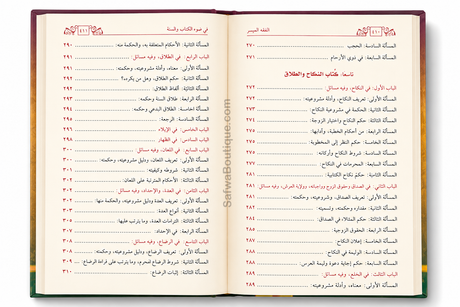 الفقه الميسر
٤١٠
المسألة السادسة: الحجب ٢٧٠
المسألة السابعة: في ذوي الأرحام ٢٧١
تاسعًا: كتاب النكاح والطلاق
الباب الأول: في النكاح، وفيه مسائل ٢٧٢
المسألة الأولى: تعريف النكاح، وأدلة مشروعيته
المسألة الثانية: الحكمة في مشروعية النكاح
المسألة الثالثة: حكم النكاح واختيار الزوجة
المسألة الرابعة: من أحكام الخطبة، وآدابها
المسألة الخامسة: حكم النظر إلى المخطوبة
المسألة السادسة: شروط النكاح وأركانه
المسألة السابعة: المحرمات في النكاح
المسألة الثامنة: حكم نكاح الكتابية
الباب الثاني: في الصداق وحقوق الزوج وواجباته، ووليمة العرس، وفيه مسائل ٢٨١
المسألة الأولى: تعريف الصداق، ومشروعيته، وحكمه ٢٨١
المسألة الثانية: مقداره وحكمته، وتسميته
المسألة الثالثة: حكم المغالاة في الصداق
المسألة الرابعة: الحقوق الزوجية
المسألة الخامسة: إعلان النكاح
المسألة السادسة: الوليمة في النكاح
المسألة السابعة: حكم إجابة دعوة وليمة العرس ٢٨٨
الباب الثالث: في الخلع، وفيه مسائل ٢٨٩
المسألة الأولى: معناه، وأدلة مشروعيته ٢٨٩
في ضوء الكتاب والسنة
٤١١
المسألة الثانية: الأحكام المتعلقة به، والحكمة منه ٢٩٠
الباب الرابع: في الطلاق، وفيه مسائل ٢٩١
المسألة الأولى: معناه، وأدلة مشروعيته، وحكمته
المسألة الثانية: حكم الطلاق، وهل من يكره؟
المسألة الثالثة: ألفاظ الطلاق
المسألة الرابعة: طلاق السنة وحكمه
المسألة الخامسة: الطلاق البدعي وحكمه
المسألة السادسة: الرجعة
الباب الخامس: في الإيلاء
الباب السادس: في الظهار
الباب السابع: في اللعان، وفيه مسائل ٣٠٠
المسألة الأولى: تعريف اللعان، ودليل مشروعيته، وحكمته ٣٠٠
المسألة الثانية: شروطه وكيفيته
المسألة الثالثة: الأحكام المترتبة على اللعان
الباب الثامن: في العدة، والإحداد، وفيه مسائل
المسألة الأولى: تعريف العدة ودليل مشروعيتها، والحكمة منها
المسألة الثانية: أنواع العدة
المسألة الثالثة: التزامات العدة، وما يترتب عليها
المسألة الرابعة: في الإحداد ٣٠٧
الباب التاسع: في الرضاع، وفيه مسائل
المسألة الأولى: تعريف الرضاع، ودليل مشروعيته، وحكمته
المسألة الثانية: شروط الرضاع المحرم، وما يترتب على قرابة الرضاع ٣٠٩
المسألة الثالثة: إثبات الرضاع ٣١٠
SafwaBoutique.com